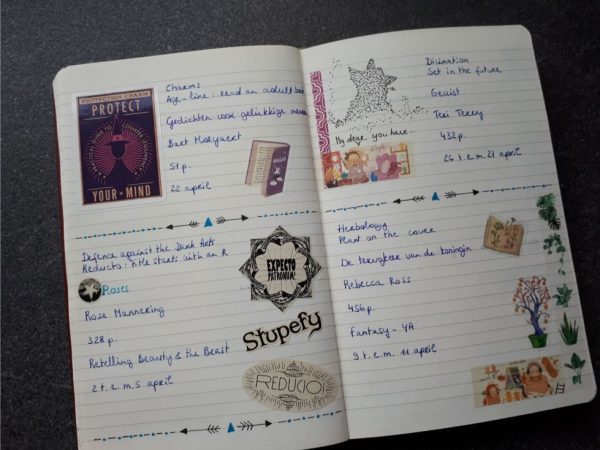 PROTECTION CHARM
PROTECT
YOUR • MIND
Charms
Age-line: read an adult book
Gedichten voor gelukkige mensen
Bart Moeyaert
51 p.
22 april
MAGIC
Defence against the Dark Arts
Reducto: title starts with an R
Roses
Rose Mannering
328 p.
Retelling Beauty & the Beast
2 t.e.m. 5 april
EXPECTO
PATRONUM!
Stupefy
REDUCIO
Divination
Set in the future
Gewist
Teri Terry
My dear, you have...
432 p.
26 t.e.m. 27 april
Herbology
Plant on the cover
De terugkeer van de koningin
Rebecca Ross
456 p.
Fantasy - YA
9 t.e.m. 11 april